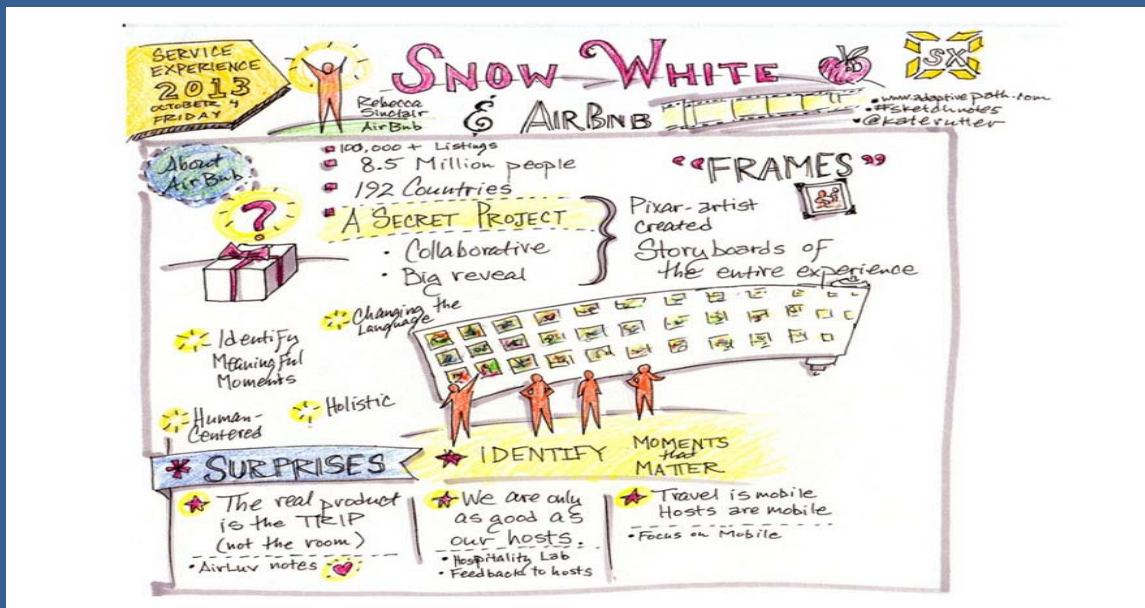 SERVICE
EXPERIENCE
2013
OCTOBER 4
FRIDAY
Rebecca
Sinclair
AirBnb
SNOW WHITE
& AIRBNB
SX
• www.adaptivepath.com
• #sketchnotes
• @katerutter
About
AirBnb
100,000 + Listings
8.5 Million people
192 Countries
A SECRET PROJECT
• Collaborative
• Big reveal
"FRAMES"
Pixar-artist
created
Storyboards of
the entire experience
?
Identify
Meaningful
Moments
Changing the
Language
Human-
Centered
Holistic
SURPRISES
IDENTIFY MOMENTS
that
MATTER
The real product
is the TRIP
(not the room)
• AirLuv notes
We are only
as good as
our hosts.
• Hospitality Lab
• Feedback to hosts
Travel is mobile
Hosts are mobile
• Focus on Mobile